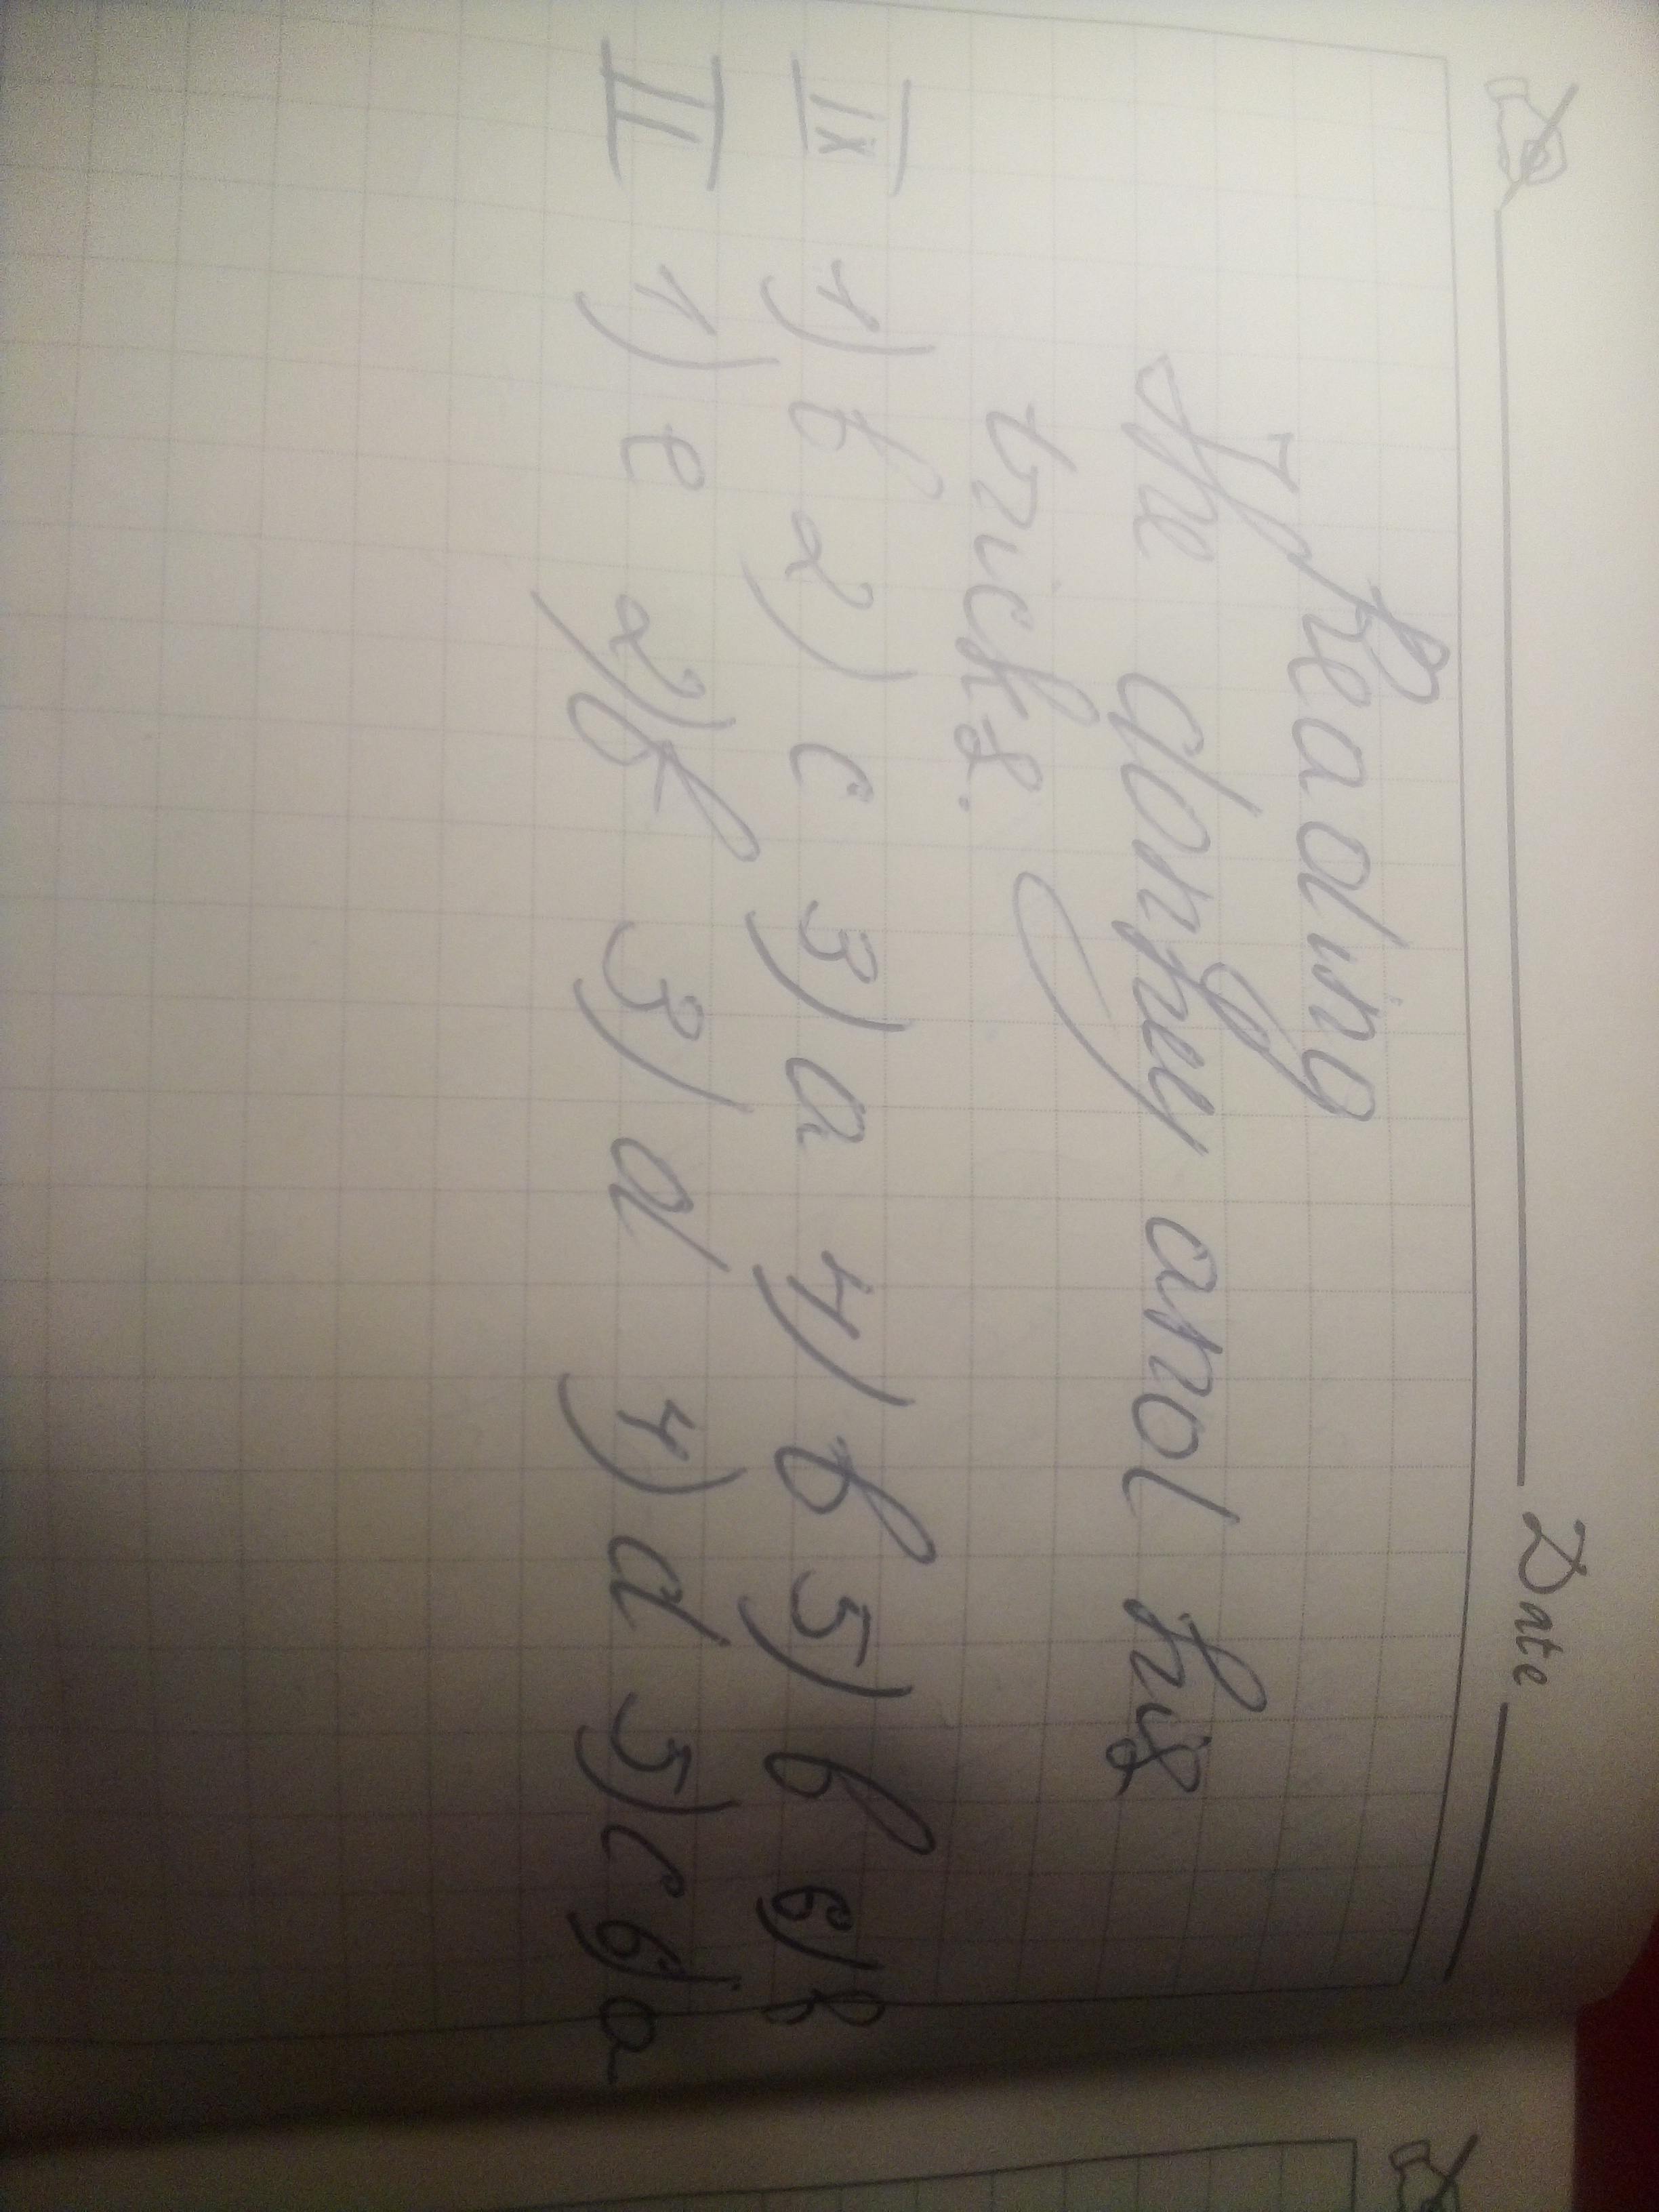 Date
Reading
The donkey and his
tricks.
I 1) b 2) c 3) a 4) b 5) b 6) b
II 1) e 2) f 3) d 4) d 5) c 6) a